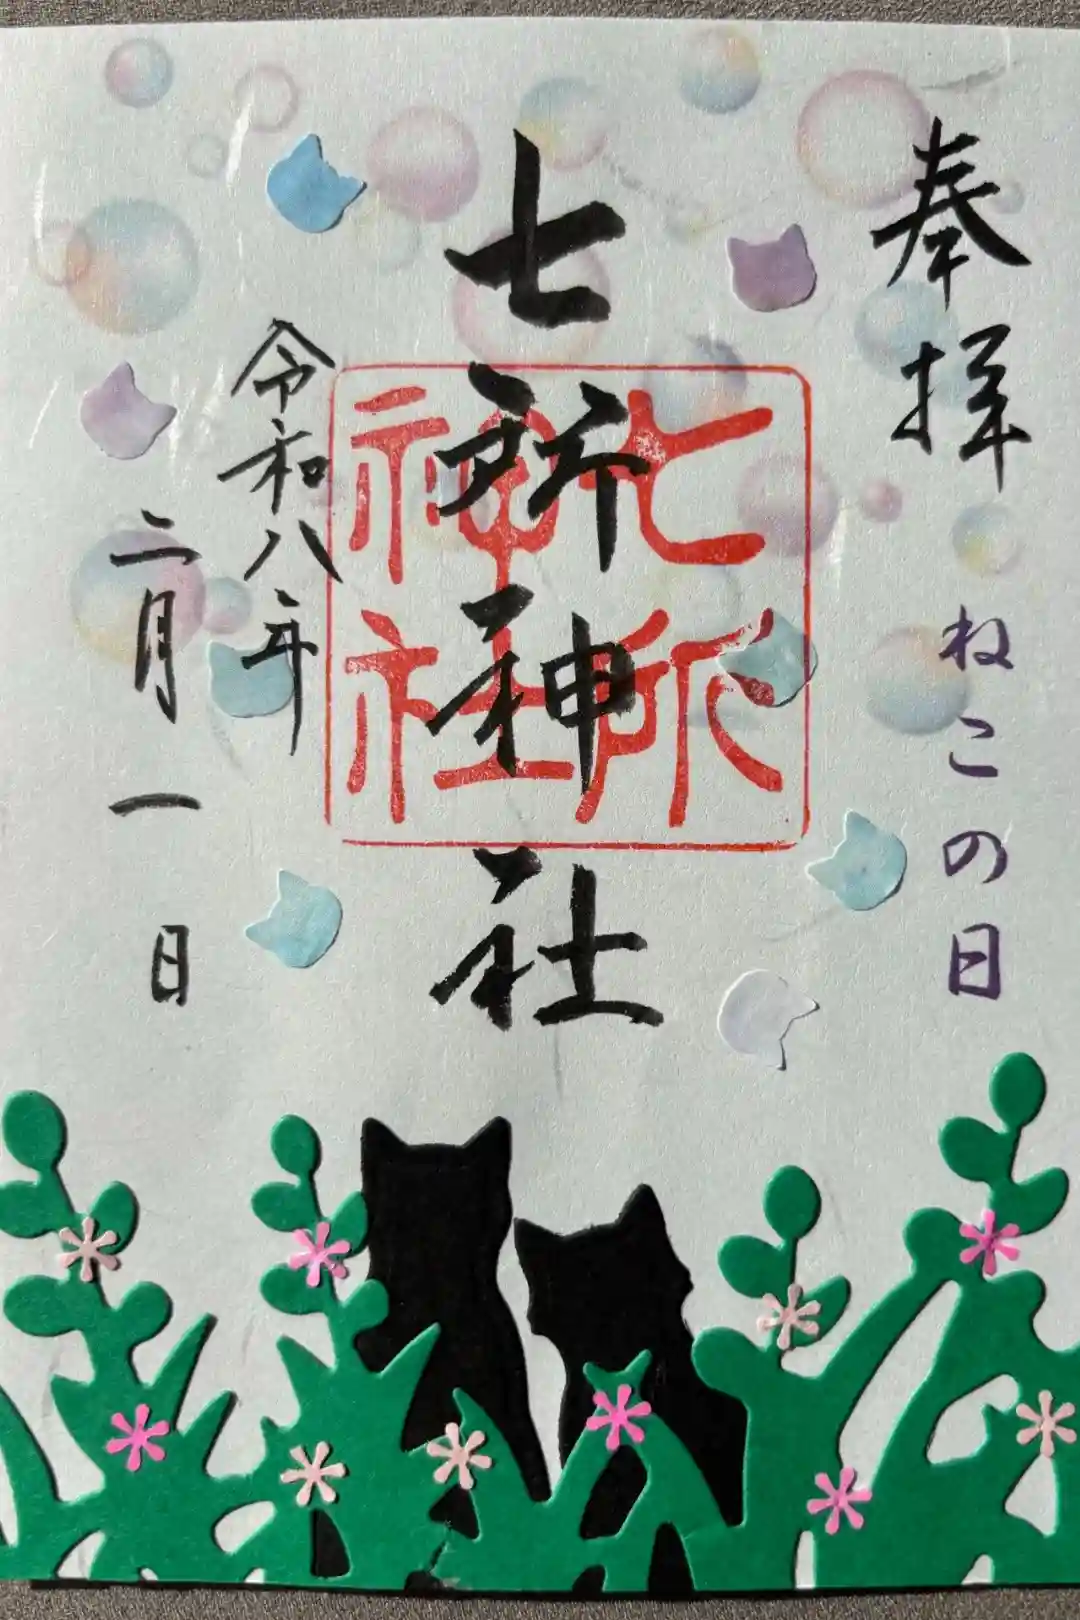 奉拝
ねこの日
七所神社
七所
神社
令和八年
二月一日